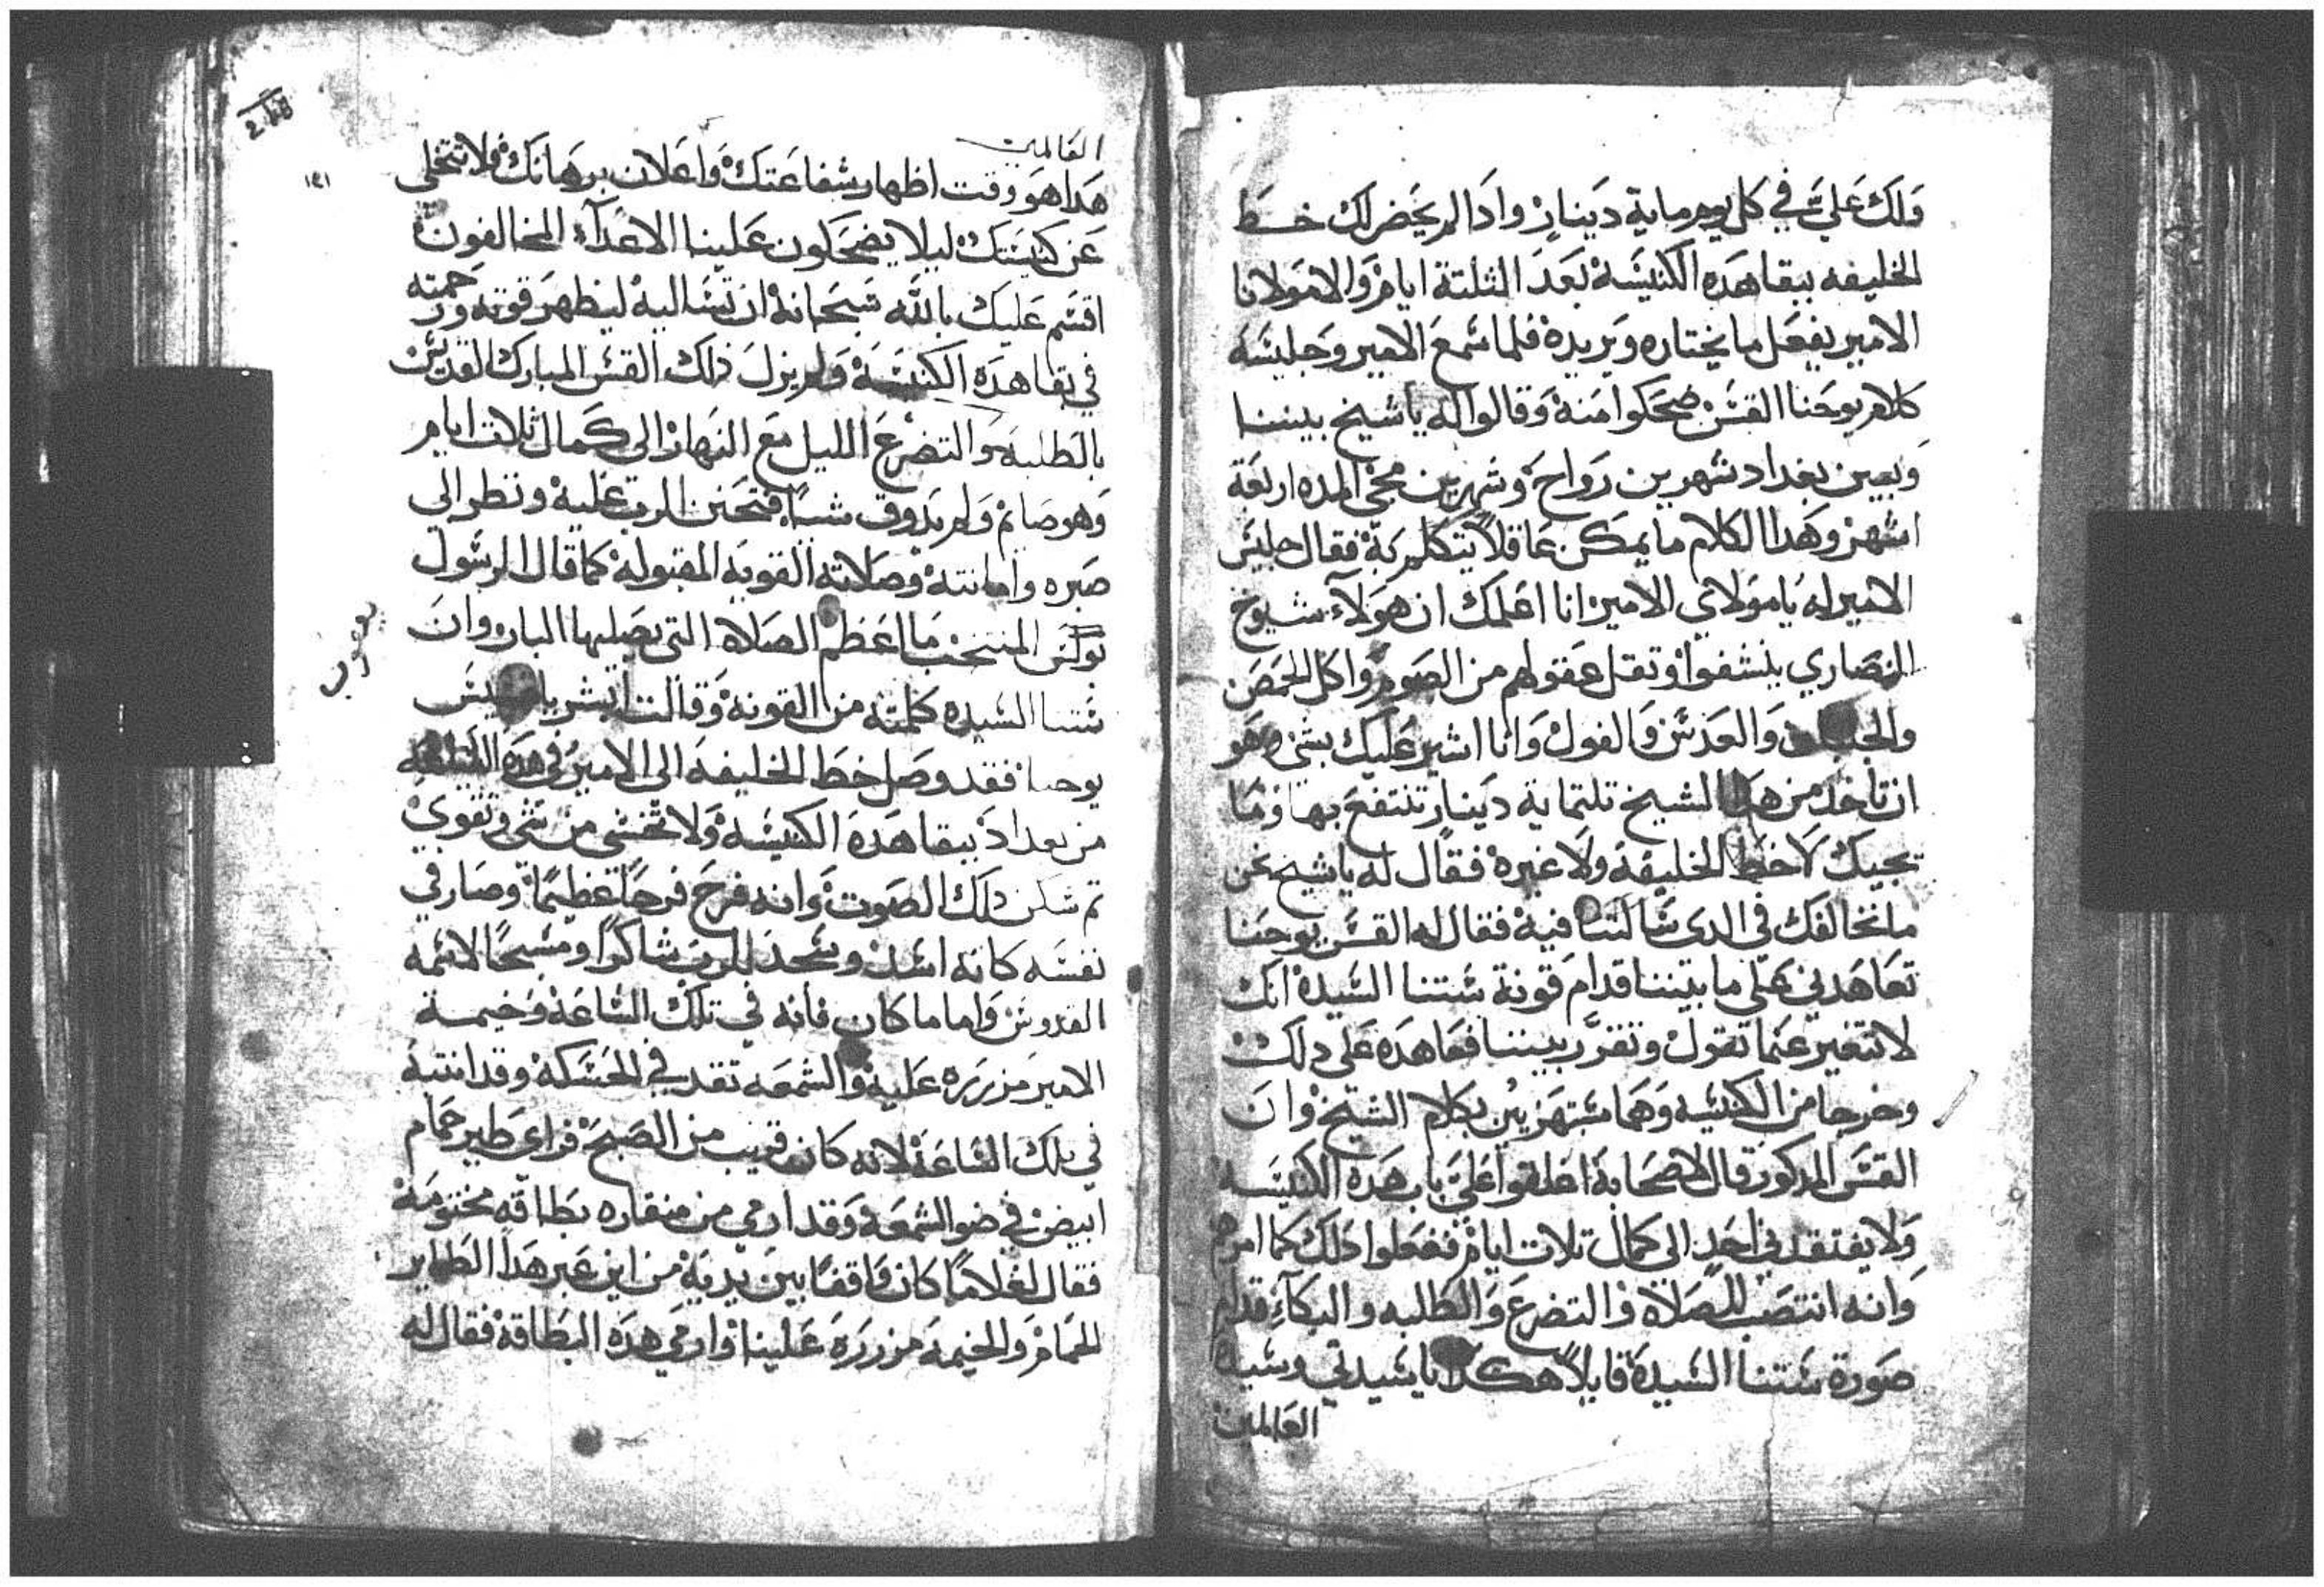 ولك علي في كل يوم ماية دينار واذا لم يحضر لك خط
الخليفه ببقا هده الكنيسة بعد الثلتة ايام والا مولانا
الامير يفعل ما يختاره ويريده فلما سمع الامير وجليسه
كلام يوحنا القس ضحكوا منه وقالوا له ياشيخ بيننا
وبين بغداد شهرين رواح وشهرين مجي المده اربعة
اشهر وهدا الكلام ما يمكن عاقلا يتكلم به فقال جليس
الامير له يا مولاي الامير انا اعلمك ان هولاء شيوخ
النصاري ينشفوا وتقل عقولهم من الصوم واكل الحمص
والعدس والفول وانا اشير عليك بشي وهو
ان تاخد من هدا الشيخ تلتماية دينار تنتفع بها وما
يجيك لا خط الخليفة ولا غيره فقال له ياشيخ نحن
ما نخالفك في الدى سالتنا فيه فقال له القس يوحنا
تعاهدني على ما بيننا قدام قونة ستنا السيدة انك
لا تتغير عنما تقول وتقرر بيننا فعاهده على دلك
وخرجا من الكنيسه وهما مستهزيين بكلام الشيخ وان
القس المدكور قال لاصحابة اغلقوا علي باب هده الكنيسه
ولا يفتقدني احد الى كمال تلات ايام ففعلوا دلك كما امرهم
وانه انتصب للصلاة والتضرع والطلبه والبكاء قدام
صورة ستنا السيدة قايلا هكدا يا سيدتي وسيدة
العالمين
248
١٤١
العالمين
هدا هو وقت اظهار شفاعتك واعلان برهانك ولا تتخلي
عن كنيستك ليلا يضحكون علينا الاعداء المخالفون
اقسم عليك بالله سبحانه ان تسالية ليظهر قوته ورحمته
في بقا هده الكنيسة ولم يزل ذلك القس المبارك القديس
بالطلبة والتضرع الليل مع النهار الى كمال ثلات ايام
وهو صايم ولم يدوق شيا فتحنن الرب عليه ونظر الي
صبره وامانته وصلاته القويه المقبوله كما قال الرسول
بولس المنتخب ما اعظم الصلاة التي يصليها البار وان
يعقوب
ستنا السيده كلمته من القونه وقالت ابشر يا قسيس
يوحنا فقد وصل خط الخليفة الى الامير في هده الليلة
من بغداد ببقا هده الكنيسة ولا تخشي من شي وتقوي
تم سكن دلك الصوت وانه فرح فرحا عظيما وصار في
نفسه كانه اسد وسجد للرب شاكرا ومسبحا لاسمه
القدوس واما ما كان فانه في تلك الساعة وخيمة
الامير مزرره عليه والشمعه تقد في الحسكة وقد انتبه
في تلك الساعة لانه كان قريب من الصبح فراى طير حمام
ابيض في ضو الشمعة وقد ارمي من منقاره بطاقه مختومة
فقال لغلاما كان واقفا بين يديه من اين عبر هدا الطاير
الحمام والخيمة مزررة علينا وارمي هده البطاقة فقال له